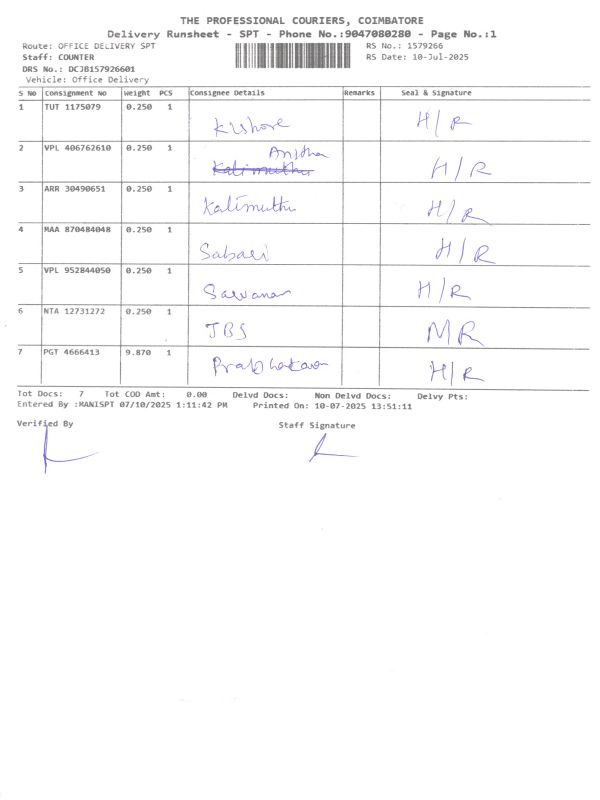 THE PROFESSIONAL COURIERS, COIMBATORE
Delivery Runsheet - SPT - Phone No.:9047080280 - Page No.:1
Route: OFFICE DELIVERY SPT RS No.: 1579266
Staff: COUNTER RS Date: 10-Jul-2025
DRS No.: DCJB157926601
Vehicle: Office Delivery
S No Consignment No Weight PCS Consignee Details Remarks Seal & Signature
1 TUT 1175079 0.250 1 Kishore H/R
2 VPL 406762610 0.250 1 Kalimuthu H/R
3 ARR 30490651 0.250 1 Kalimuthu H/R
4 MAA 870484048 0.250 1 Sabari H/R
5 VPL 952844050 0.250 1 Saravanan H/R
6 NTA 12731272 0.250 1 JBS MR
7 PGT 4666413 9.870 1 Prabhakaran H/R
Tot Docs: 7 Tot COD Amt: 0.00 Delvd Docs: Non Delvd Docs: Delvy Pts:
Entered By :MANISPT 07/10/2025 1:11:42 PM Printed On: 10-07-2025 13:51:11
Verified By Staff Signature